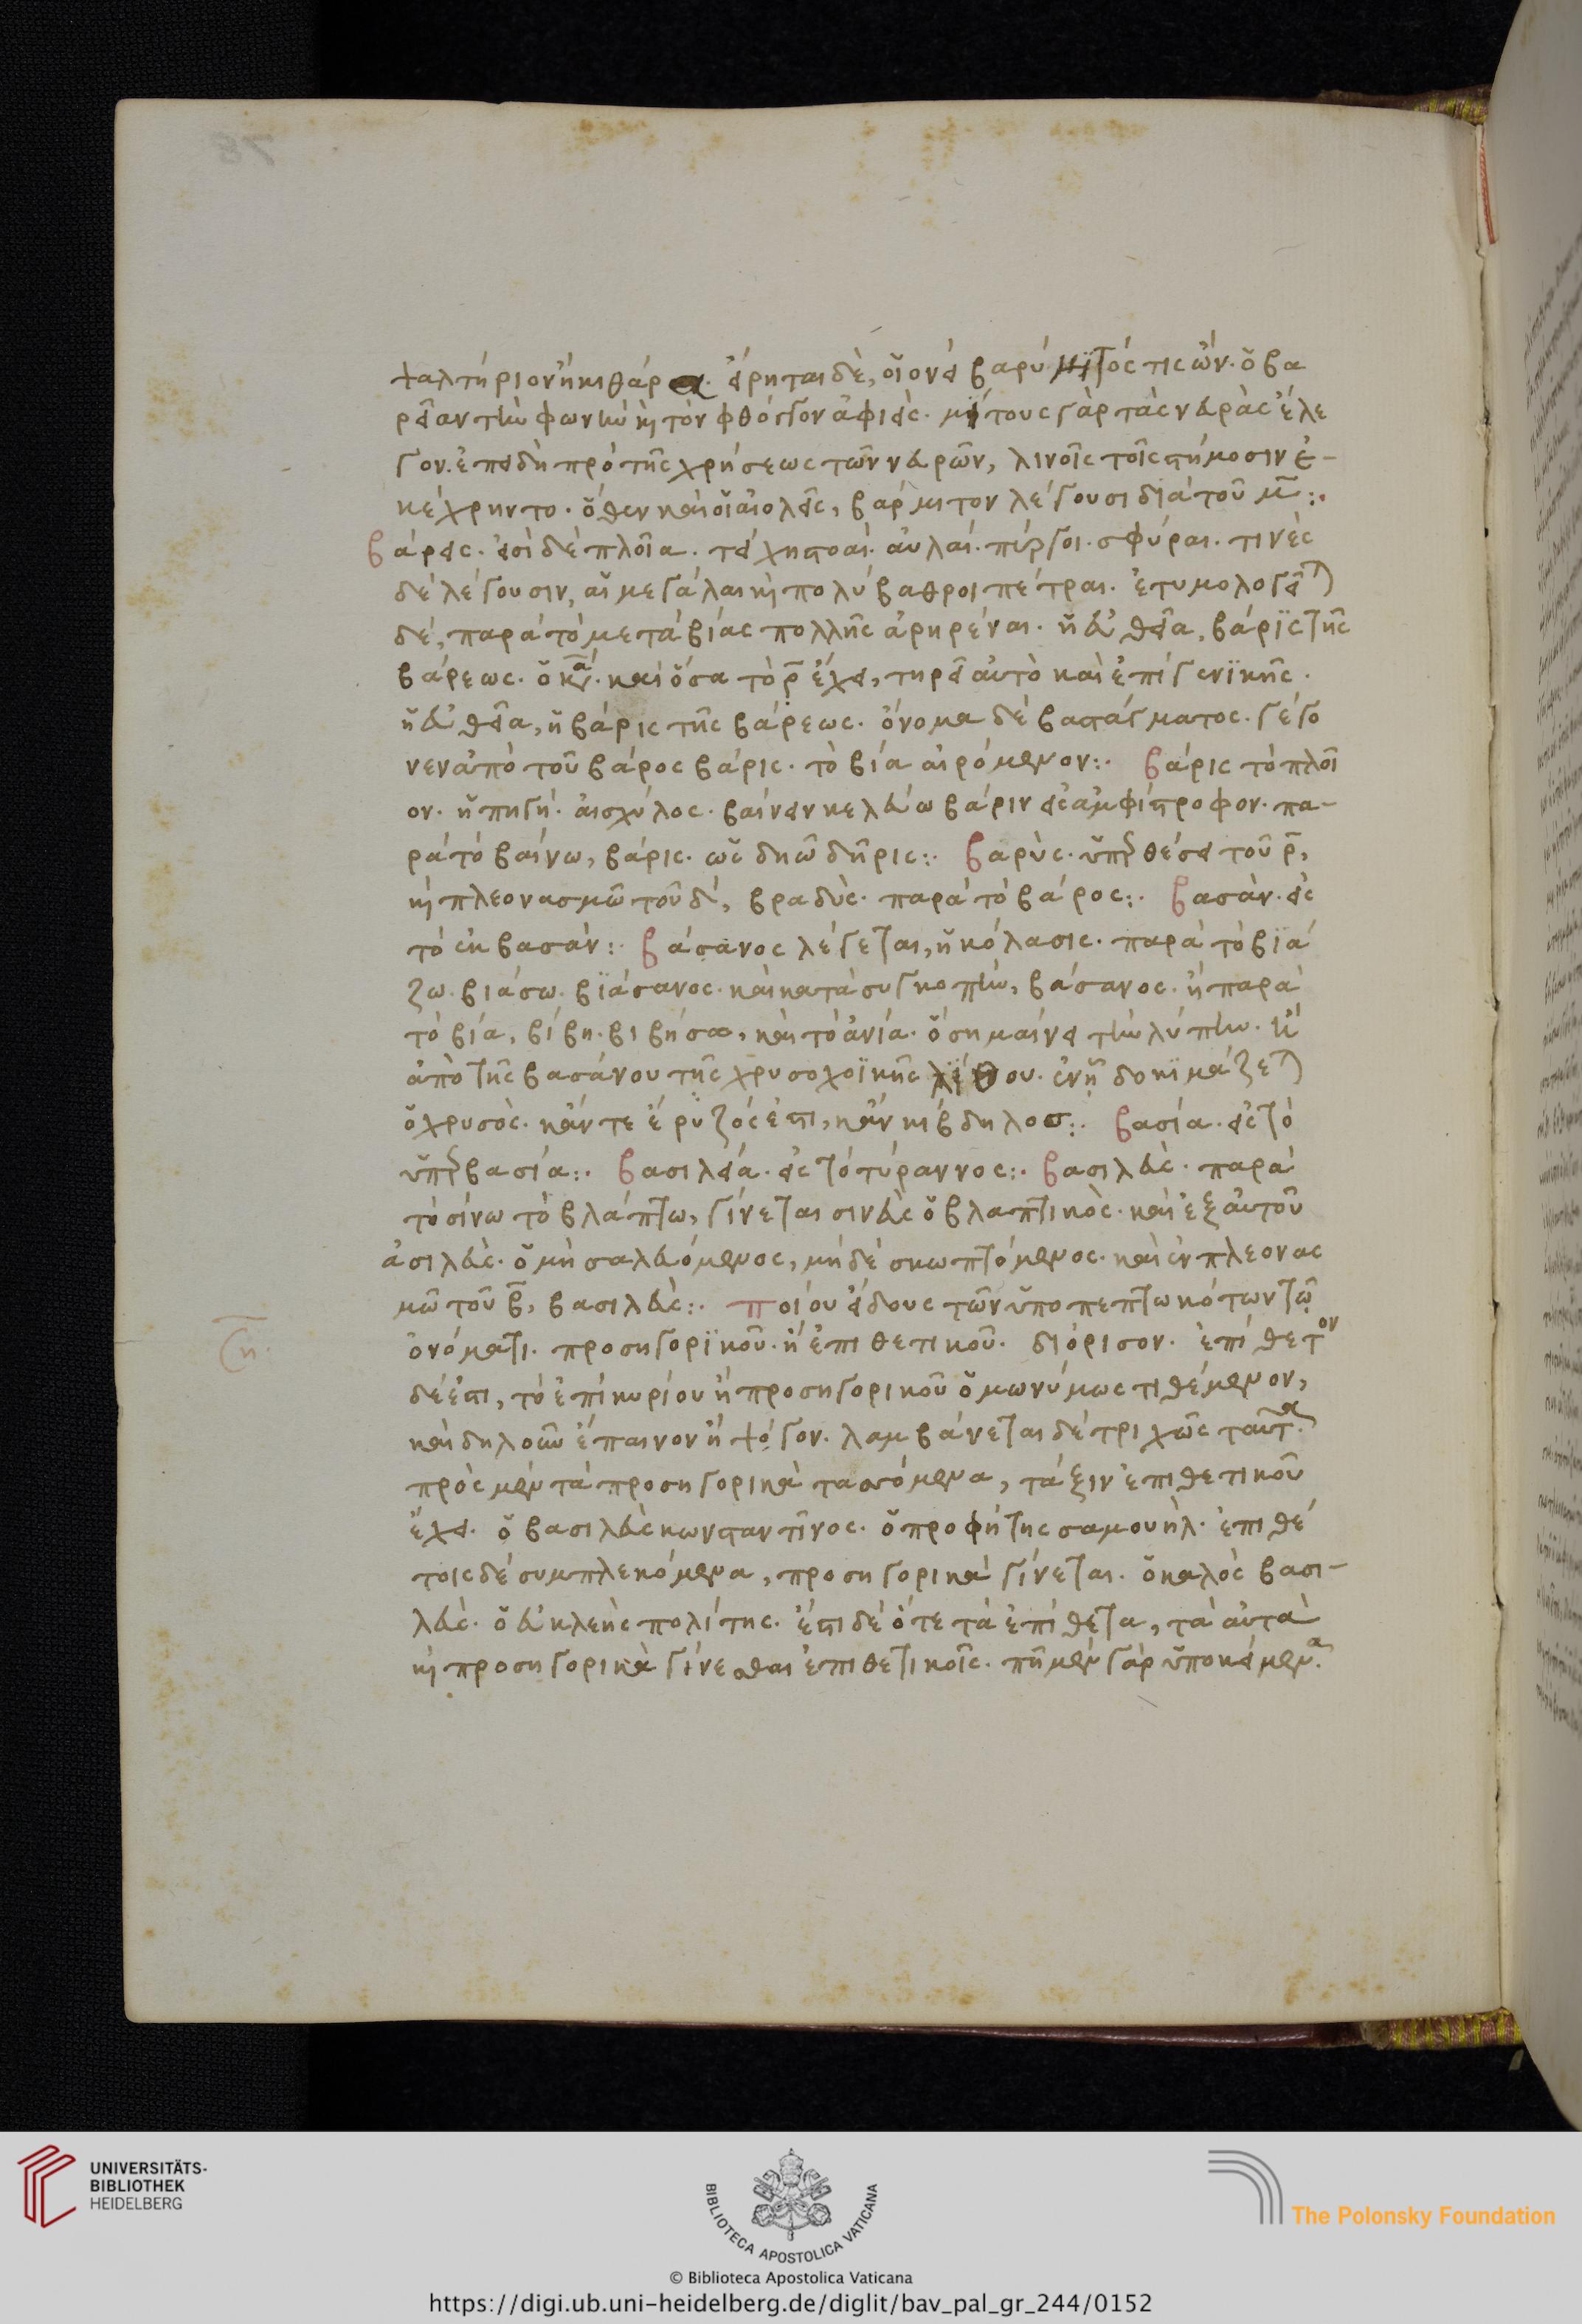 ψαλτήριον ἢ κιθάρα. εἴρηται δὲ, οἱονεὶ βαρύμιτός τις ὤν. ὁ βα
ρεῖαν τὴν φωνὴν καὶ τὸν φθόγγον ἀφιείς. μίτους γὰρ τὰς νευρὰς ἔλε
γον. ἐπειδὴ πρὸ τῆς χρήσεως τῶν νευρῶν, λινοῖς τοῖς στήμοσιν ἐ-
κέχρηντο. ὅθεν καὶ οἱ αἰολεῖς, βάρμιτον λέγουσι διὰ τοῦ μ̅ :.
βάρεις. εἰσὶ δὲ πλοῖα. τείχη στοαί. αὐλαί. πύργοι. σφύραι. τινὲς
δὲ λέγουσιν, αἱ μεγάλαι καὶ πολύβαθροι πέτραι. ἐτυμολογεῖται
δέ, παρὰ τὸ μετὰ βίας πολλῆς ἀρηρέναι. ἡ εὐθεῖα, βάρϊς τῆς
βάρεως. ὁ κα. καὶ ὅσα τὸ ρ̅ ἔχει, τηρεῖ αὐτὸ καὶ ἐπὶ γενϊκῆς.
ἡ εὐθεῖα, ἡ βάρις τῆς βάρεως. ὄνομα δὲ βαστάγματος. γέγο
νεν ἀπὸ τοῦ βάρος βάρις. τὸ βία αἱρόμενον :. βάρις τὸ πλοῖ
ον. ἢ πηγή. αἰσχύλος. βαίνειν κελεύω βάριν εἰς ἀμφίστροφον. πα-
ρὰ τὸ βαίνω, βάρις. ὡς δηῶ δῆρις :. βαρὺς. ὑπερθέσει τοῦ ρ̅,
καὶ πλεονασμῶ τοῦ δ, βραδύς. παρὰ τὸ βάρος :. βασὰν. εἰς
τὸ ἐκ βασάν :. βάσανος λέγεται, ἡ κόλασις. παρὰ τὸ βϊά
ζω. βιάσω. βϊάσανος. καὶ κατὰ συγκοπὴν, βάσανος. ἢ παρὰ
τὸ βία, βίβη. βιβήσω, καὶ τὸ ἀνία. ὃ σημαίνει τὴν λύπην. ἢ
ἀπὸ τῆς βασάνου τῆς χρυσοχοϊκῆς λίθου. ἐν ᾗ δοκϊμάζεται
ὁ χρυσὸς. κἄν τε ἔρυζός ἐστι, κἂν κίβδηλος :. βασία. εἰς τὸ
ὑπερβασία :. βασιλεία. εἰς τὸ τύραννος :. βασιλεὺς. παρὰ
τὸ σίνω τὸ βλάπτω, γίνεται σινεὺς ὁ βλαπτικὸς. καὶ ἐξ αὐτοῦ
ἀσιλεὺς. ὁ μὴ σαλευόμενος, μηδὲ σκωπτόμενος. καὶ ἐν πλεονας
μῶ τοῦ β̅, βασιλεὺς :. ποίου εἴδους τῶν ὑποπεπτωκότων τῶ
ὀνόματι. προσηγορϊκοῦ. ἢ ἐπιθετικοῦ. διόρισον. ἐπίθετον
δέ ἐστι, τὸ ἐπὶ κυρίου ἢ προσηγορικοῦ ὁμωνύμως τιθέμενον,
καὶ δηλοῦν ἔπαινον ἢ ψόγον. λαμβάνεται δὲ τριχῶς ταῦτα.
πρὸς μὲν τὰ προσηγορικὰ τασσόμενα, τάξιν ἐπιθετικοῦ
ἔχει. ὁ βασιλεὺς κωνσταντῖνος. ὁ προφήτης σαμουήλ. ἐπιθέ
τοις δὲ συμπλεκόμενα, προσηγορικὰ γίνεται. ὁ καλὸς βασι-
λεὺς. ὁ εὐκλεὴς πολίτης. ἔστι δὲ ὅτε τὰ ἐπίθετα, τὰ αὐτὰ
καὶ προσηγορικὰ γίνεσθαι ἐπιθετικοῖς. πῆ μὲν γὰρ ὑποκείμενα.
UNIVERSITÄTS-
BIBLIOTHEK
HEIDELBERG
BIBLIOTECA APOSTOLICA VATICANA
© Biblioteca Apostolica Vaticana
The Polonsky Foundation
https://digi.ub.uni-heidelberg.de/diglit/bav_pal_gr_244/0152